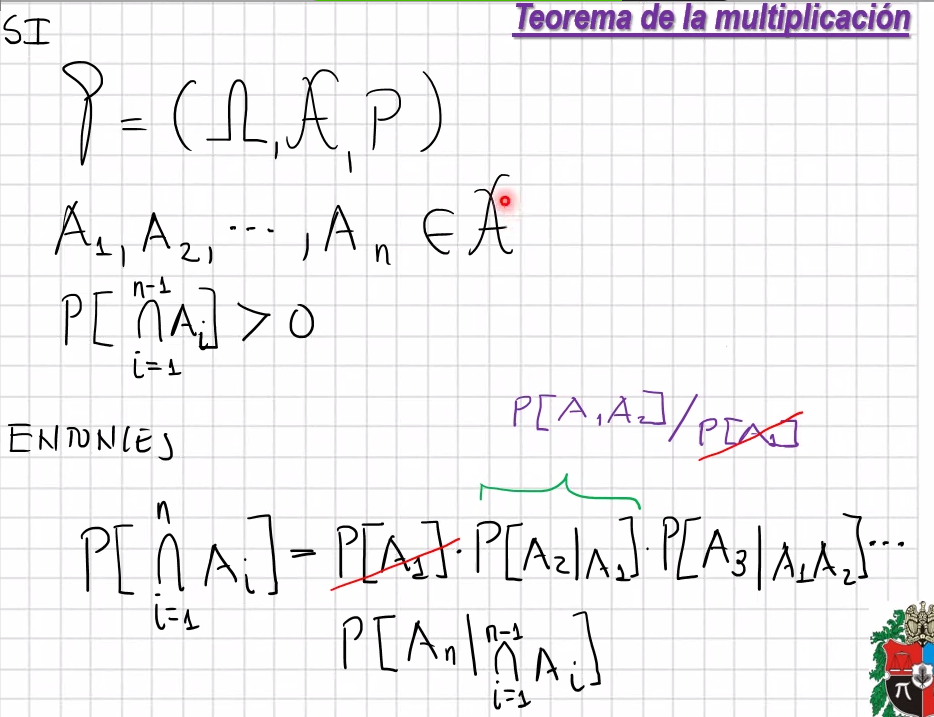 Teorema de la multiplicación
SI
𝒫 = (Ω, 𝒜, P)
A₁, A₂, ⋯, Aₙ ∈ 𝒜
P[⋂ᵢ₌₁ⁿ⁻¹ Aᵢ] > 0
P[A₁A₂]/P[A₁]
ENTONCES
P[⋂ᵢ₌₁ⁿ Aᵢ] = P[A₁]·P[A₂|A₁]·P[A₃|A₁A₂]⋯
P[Aₙ|⋂ᵢ₌₁ⁿ⁻¹ Aᵢ]
π